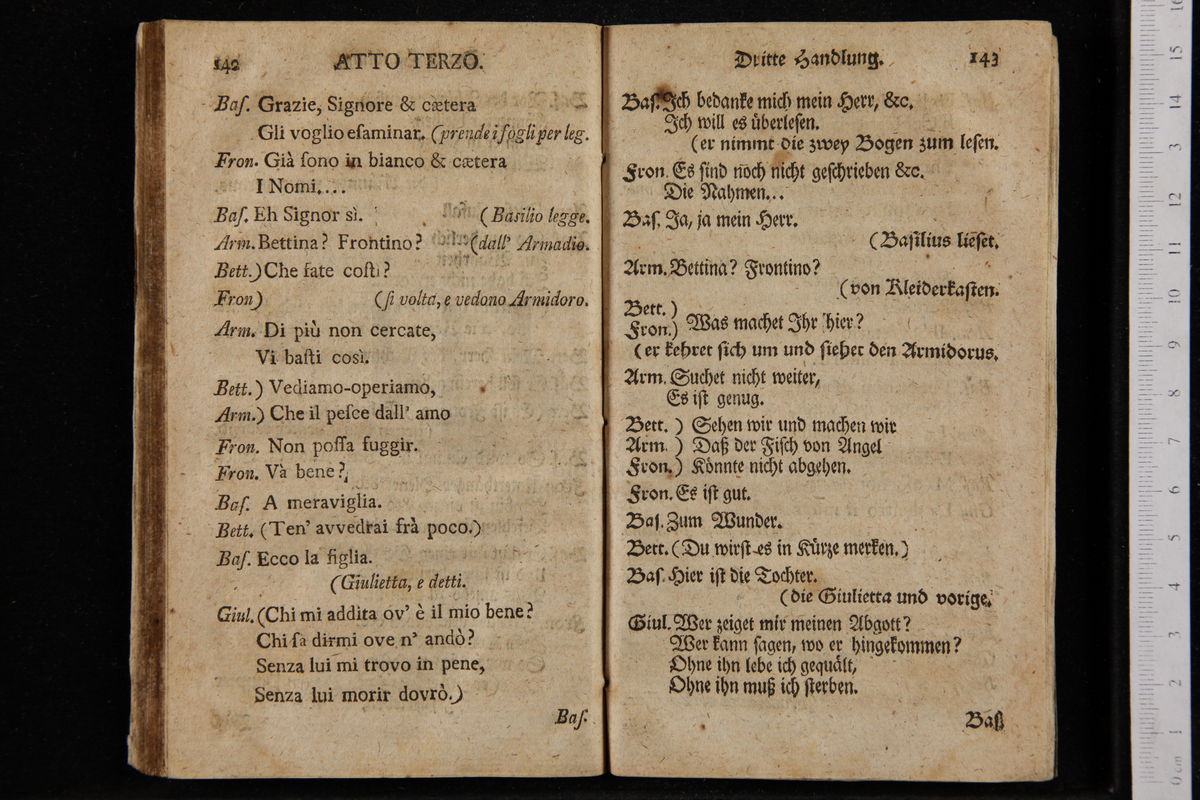 142 ATTO TERZO.
Baſ. Grazie, Signore & cætera
Gli voglio eſaminar. (prende i fogli per leg.
Fron. Già ſono in bianco & cætera
I Nomi....
Baſ. Eh Signor sì. (Baſilio legge.
Arm. Bettina? Frontino? (dall' Armadio.
Bett.) Che fate coſtì?
Fron) (ſi volta, e vedono Armidoro.
Arm. Di più non cercate,
Vi baſti così.
Bett.) Vediamo-operiamo,
Arm.) Che il peſce dall' amo
Fron. Non poſſa fuggir.
Fron. Và bene?
Baſ. A meraviglia.
Bett. (Ten' avvedrai frà poco.)
Baſ. Ecco la figlia.
(Giulietta, e detti.
Giul. (Chi mi addita ov' è il mio bene?
Chi ſa dirmi ove n' andò?
Senza lui mi trovo in pene,
Senza lui morir dovrò.)
Baſ.
Dritte Handlung. 143
Baſ. Ich bedanke mich mein Herr, &c.
Ich will es überleſen.
(er nimmt die zwey Bogen zum leſen.
Fron. Es ſind noch nicht geſchrieben &c.
Die Nahmen...
Baſ. Ja, ja mein Herr.
(Baſilius lieſet.
Arm. Bettina? Frontino?
(von Kleiderkaſten.
Bett.)
Fron.) Was machet Ihr hier?
(er kehret ſich um und ſiehet den Armidorus.
Arm. Suchet nicht weiter,
Es iſt genug.
Bett. ) Sehen wir und machen wir
Arm. ) Daß der Fiſch von Angel
Fron.) Könnte nicht abgehen.
Fron. Es iſt gut.
Baſ. Zum Wunder.
Bett. (Du wirſt es in Kürze merken.)
Baſ. Hier iſt die Tochter.
(die Giulietta und vorige.
Giul. Wer zeiget mir meinen Abgott?
Wer kann ſagen, wo er hingekommen?
Ohne ihn lebe ich gequält,
Ohne ihn muß ich ſterben.
Baß